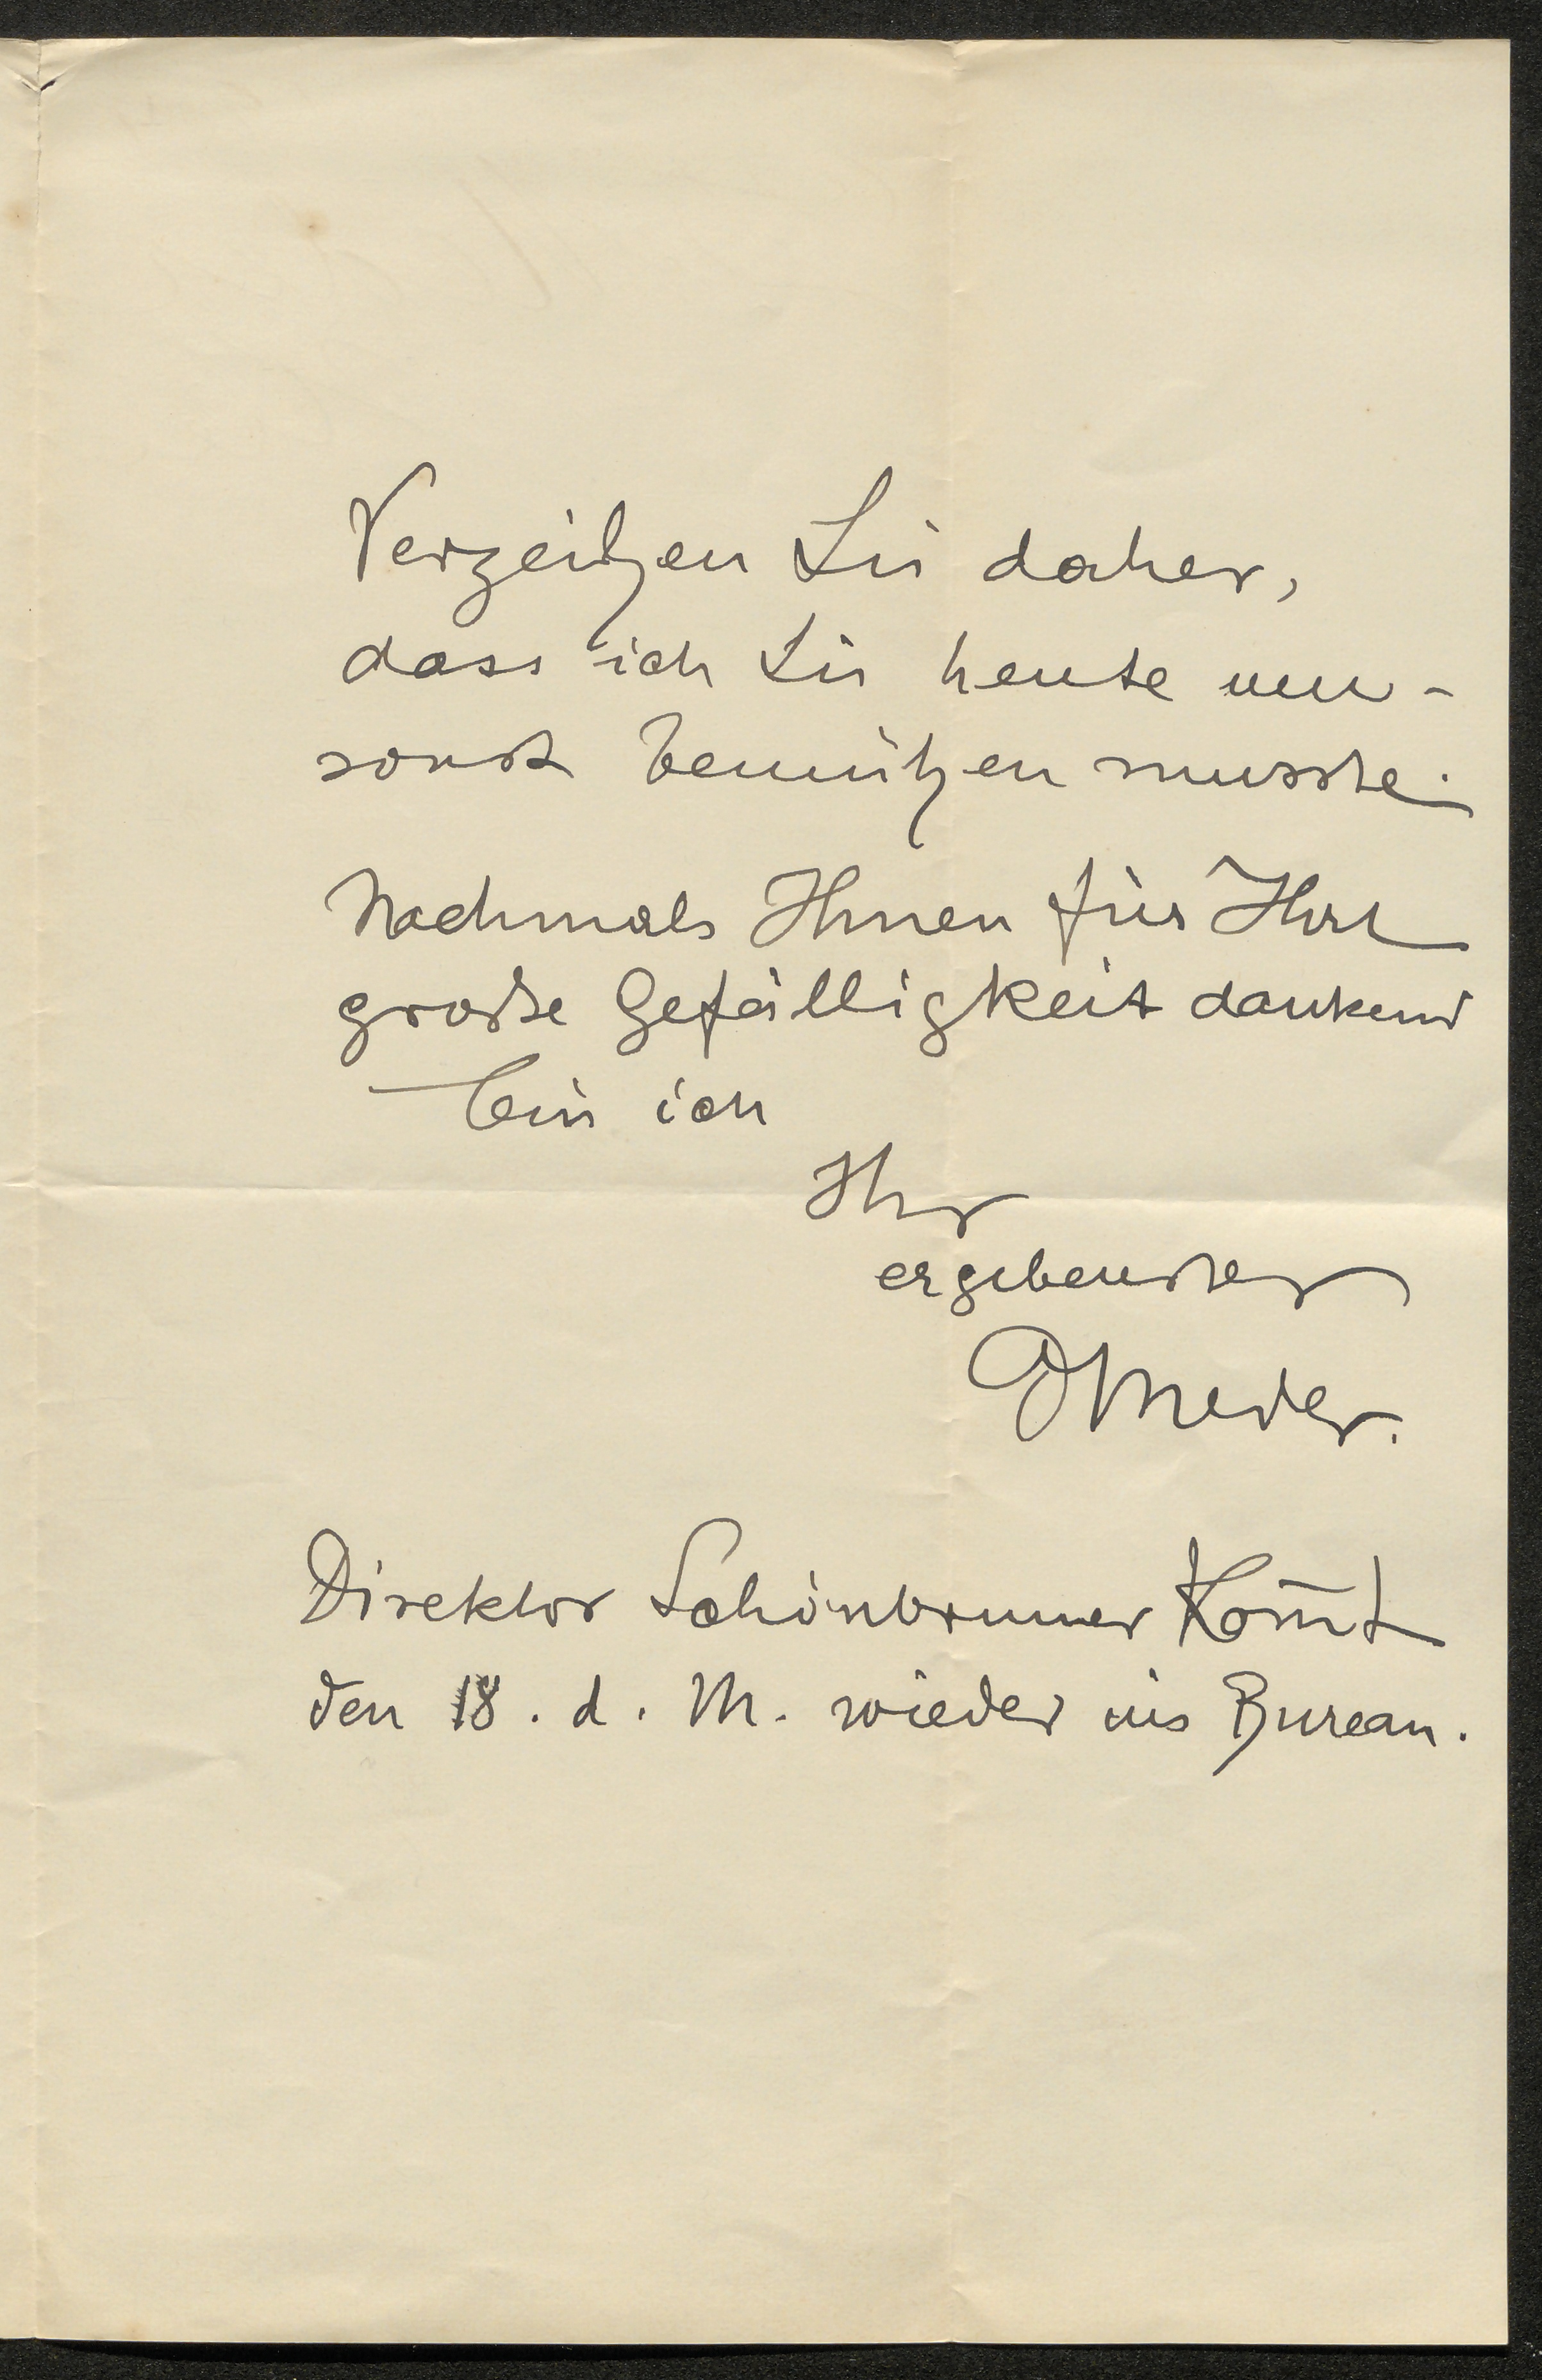 Verzeihen Sie daher,
dass ich Sie heute um-
sonst bemühen musste.
Nochmals Ihnen für Ihre
große Gefälligkeit dankend
bin ich
Ihr
ergebenster
Meder.
Direktor Schönbrunner kom̄t
den 18. d. M. wieder ins Bureau.